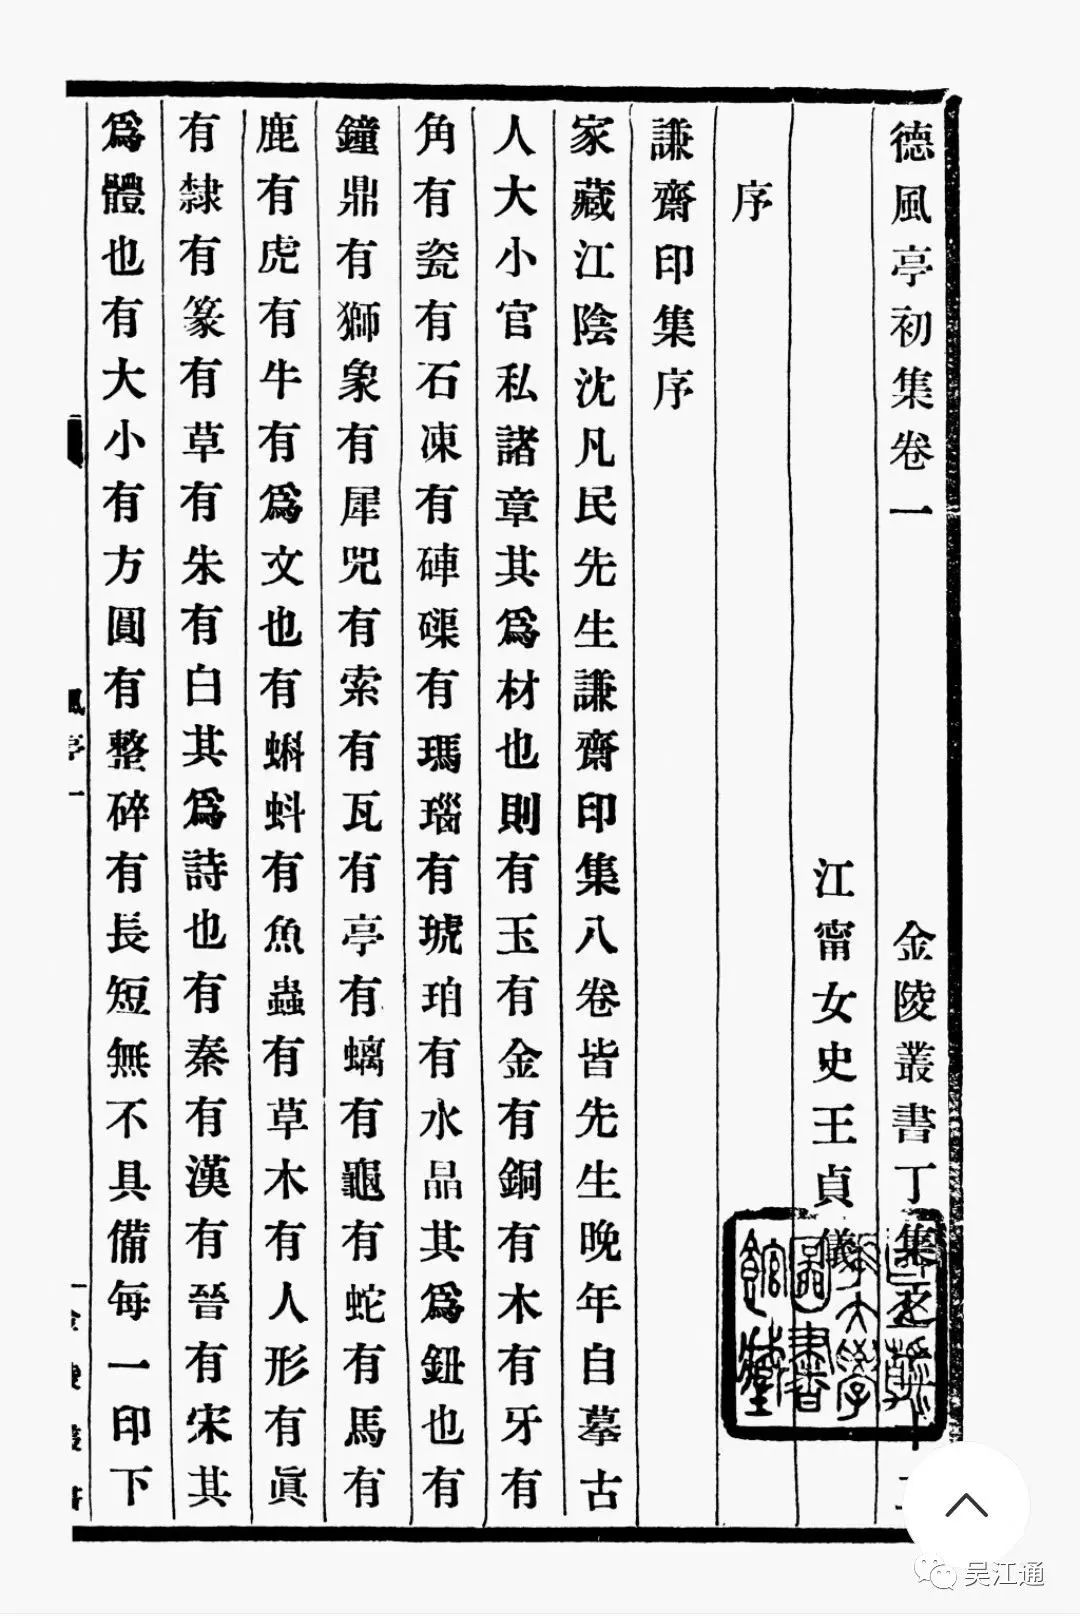 德風亭初集卷一
金陵叢書丁集之
江甯女史王貞儀
序
謙齋印集序
家藏江陰沈凡民先生謙齋印集八卷皆先生晚年自摹古
人大小官私諸章其爲材也則有玉有金有銅有木有牙有
角有瓷有石凍有硨磲有瑪瑙有琥珀有水晶其爲鈕也有
鐘鼎有獅象有犀兕有索有瓦有亭有螭有龜有蛇有馬有
鹿有虎有牛有爲文也有蝌蚪有魚蟲有草木有人形有眞
有隸有篆有草有朱有白其爲詩也有秦有漢有晉有宋其
爲體也有大小有方圓有整碎有長短無不具備每一印下
吴江通